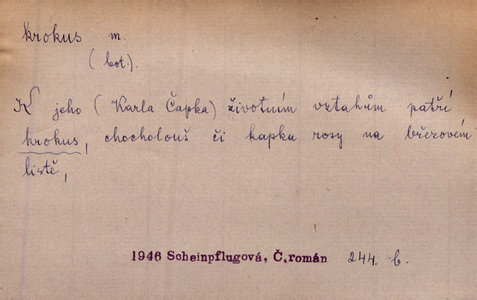 krokus m.
(bot).
K jeho (Karla Čapka) životním vztahům patří
krokus, chocholouš či kapka rosy na březovém
listě,
1946 Scheinpflugová, Č.román 244. b.